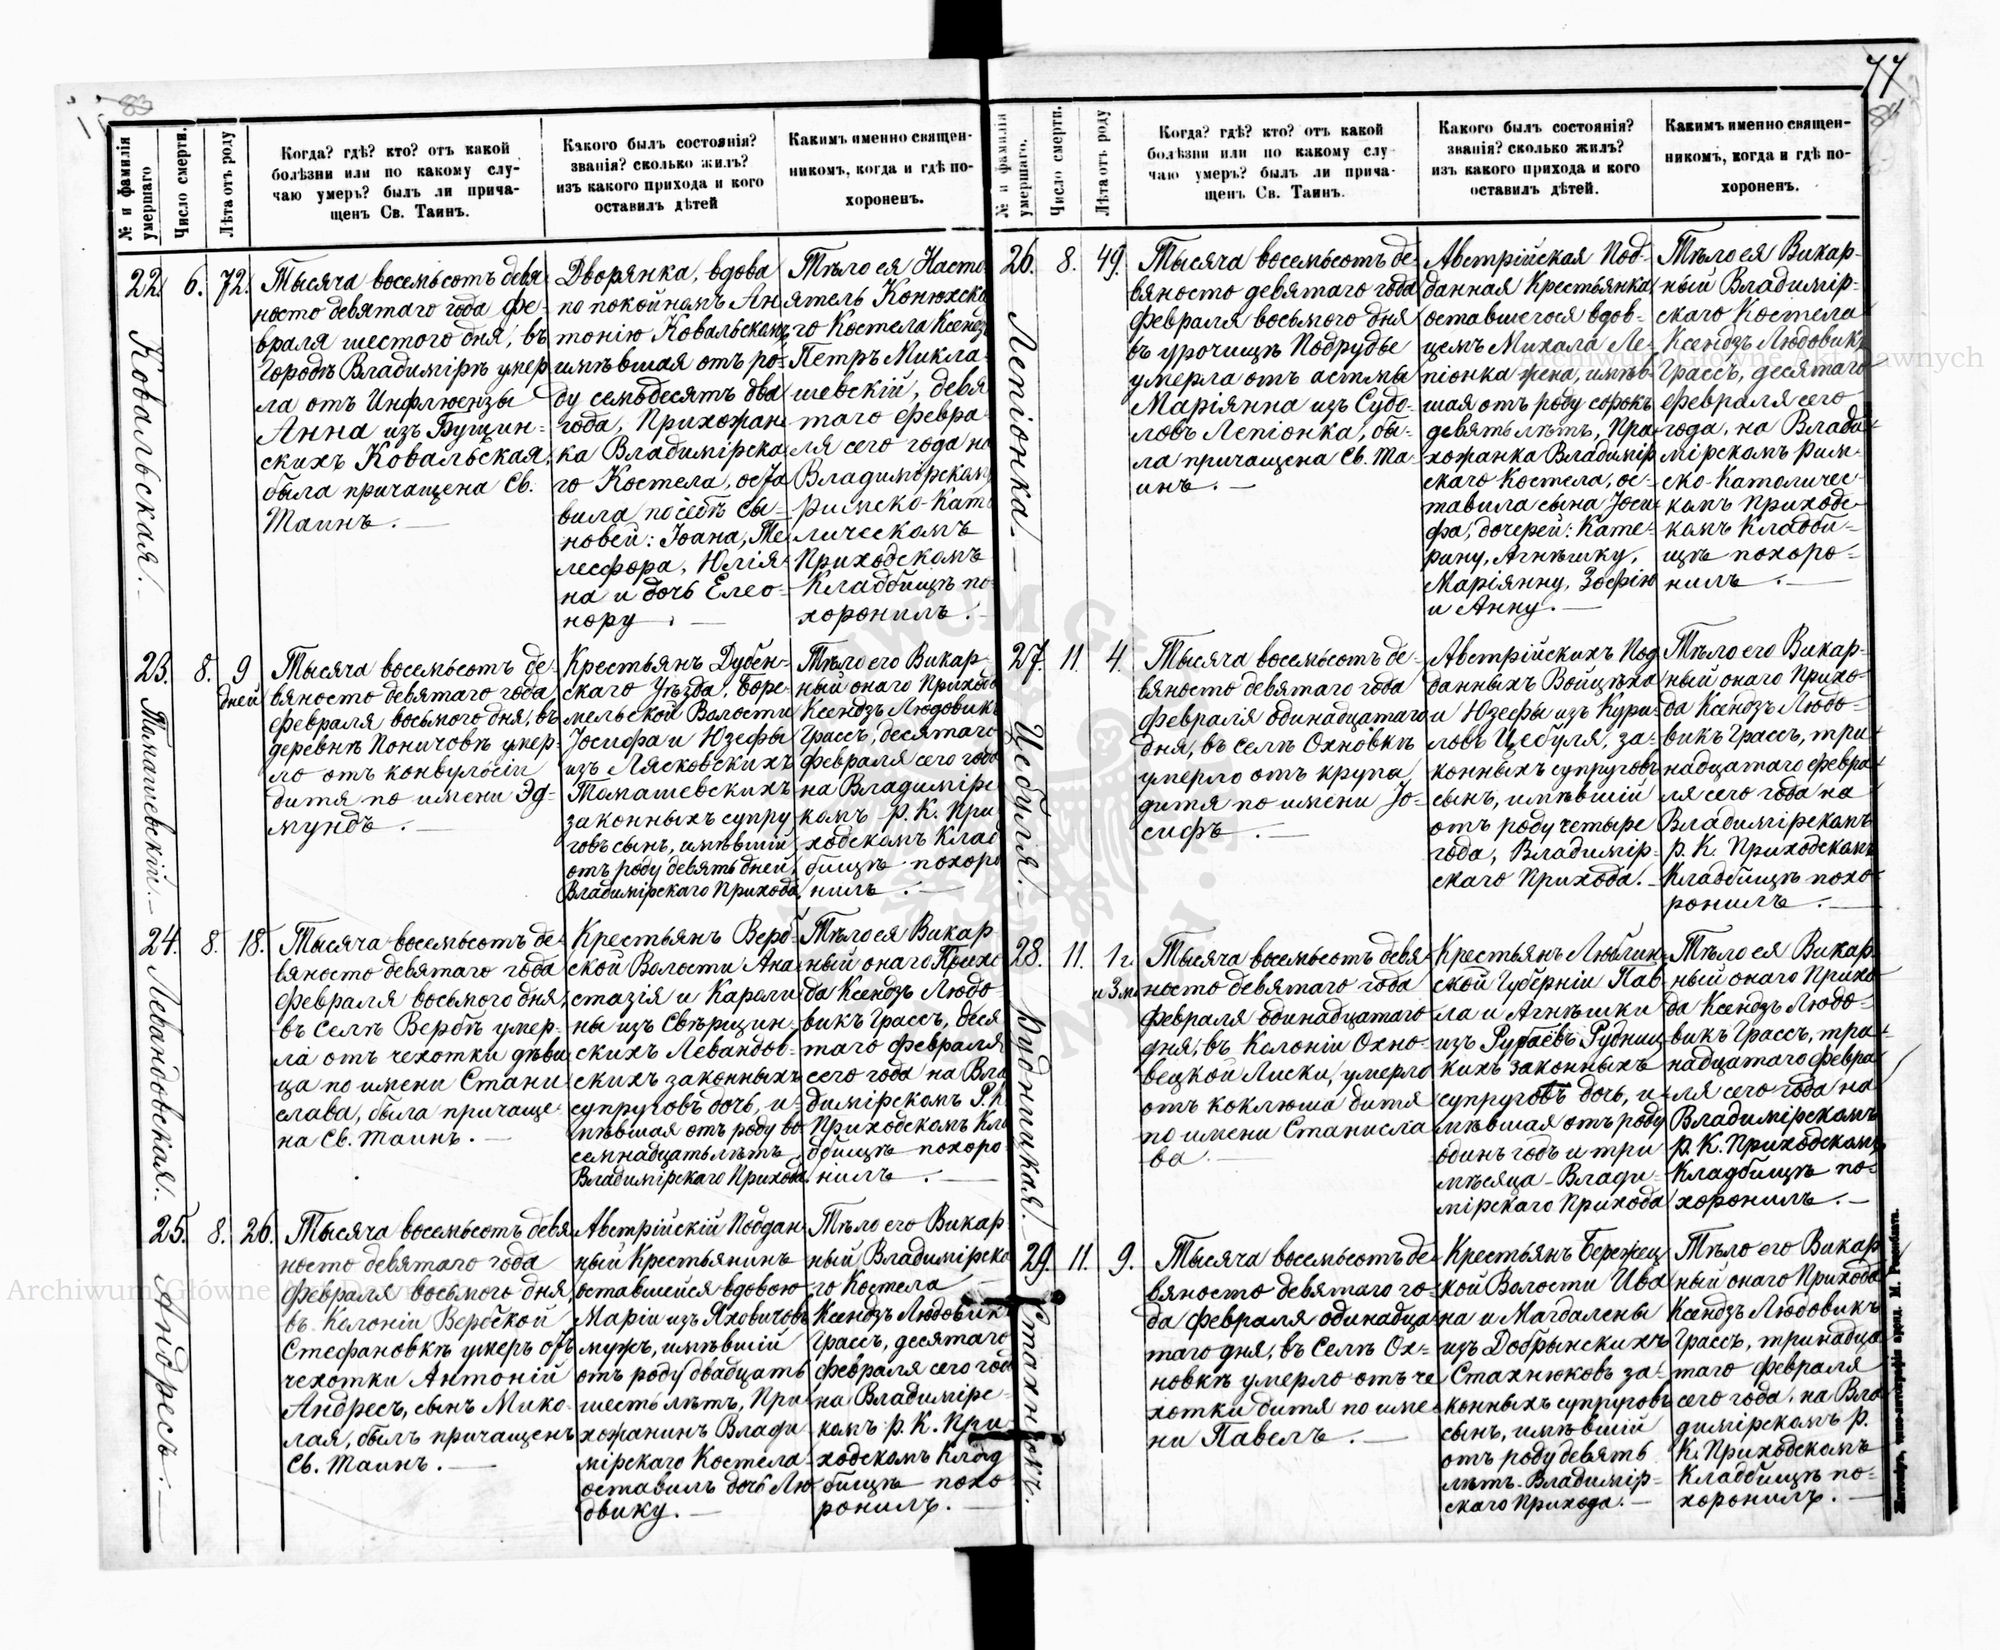 77
83
84
№ и фамилія умершаго
Число смерти.
Лѣта отъ роду
Когда? гдѣ? кто? отъ какой
болѣзни или по какому слу-
чаю умеръ? былъ ли прича-
щенъ Св. Таинъ.
Какого былъ состоянія?
званія? сколько жилъ?
изъ какого прихода и кого
оставилъ дѣтей
Какимъ именно священ-
никомъ, когда и гдѣ по-
хороненъ.
22.
Ковальская.
6.
72.
Тысяча восемьсотъ девя-
носто девятаго года Фе-
враля шестого дня, въ
городѣ Владимірѣ умер-
ла отъ Инфлюензы
Анна изъ Бущин-
скихъ Ковальская,
была причащена Св.
Таинъ. —
Дворянка, вдова
по покойномъ Ан-
тонію Ковальскомъ,
имѣвшая отъ ро-
ду семьдесятъ два
года, Прихожан-
ка Владимірска-
го Костела, оста
вила по себѣ сы-
новей: Іоана, Те-
лесфора, Юлія-
на и дочь Елео-
нору. —
Тѣло ея Насто-
ятель Конюхска
го Костела Ксендзъ
Петръ Микла-
шевскій, девя
таго Февра-
ля сего года на
Владимірскомъ
Римско-Като
лическомъ
Приходскомъ
Кладбищѣ по-
хоронилъ. —
23.
Томашевскій. —
8.
9
дней
Тысяча восемьсотъ де-
вяносто девятаго года
Февраля восьмого дня, въ
деревнѣ Поничовѣ умер-
ло отъ конвульсіи
дитя по имени Эд-
мундъ. —
Крестьянъ Дубен-
скаго Уѣзда, Боре-
мельской Волости
Іосифа и Юзефы
изъ Лясковскихъ
Томашевскихъ
законныхъ супру
говъ сынъ, имѣвшій
отъ роду девять дней,
Владимірскаго Прихода.
Тѣло его Викар-
ный онаго Прихода
Ксендзъ Людовикъ
Грассъ, десятаго
Февраля сего года
на Владимірс
комъ Р. К. При
ходскомъ Клад
бищѣ похоро
нилъ. —
24.
Левандовская.
8.
18.
Тысяча восемьсотъ де-
вяносто девятаго года
Февраля восьмого дня,
въ селѣ Вербѣ умер-
ла отъ чехотки дѣви
ца по имени Стани
слава, была причаще-
на Св. Таинъ. —
Крестьянъ Верб-
ской Волости Ана
стазія и Кароли
ны изъ Свѣрщин-
скихъ Левандов-
скихъ законныхъ
супруговъ дочь, и-
мѣвшая отъ роду во
семнадцать лѣтъ,
Владимірскаго Прихода.
Тѣло ея Викар
ный онаго Прихо
да Ксендзъ Людо-
викъ Грассъ, деся
таго Февраля
сего года на Вла
димірскомъ Р. К.
Приходскомъ Кла
дбищѣ похоро
нилъ. —
25.
Андресъ. —
8.
26.
Тысяча восемьсотъ девя
носто девятаго года
Февраля восьмого дня,
въ Колоніи Вербской
Стефановкѣ умеръ отъ
чехотки Антоній
Андресъ, сынъ Мико-
лая, былъ причащенъ
Св. Таинъ. —
Австрійскій Поддан-
ный Крестьянинъ
оставшейся вдовою
Маріи изъ Яховичовъ
мужъ, имѣвшій
отъ роду двадцать
шесть лѣтъ, При-
хожанинъ Влади-
мірскаго Костела
оставилъ дочь Лю
двику. —
Тѣло его Викар-
ный Владимірска
го Костела
Ксендзъ Людовикъ
Грассъ, десятаго
Февраля сего года
на Владимірс-
комъ Р. К. При-
ходскомъ Клад
бищѣ похо
ронилъ. —
№ и фамилія умершаго.
Число смерти.
Лѣта отъ роду
Когда? гдѣ? кто? отъ какой
болѣзни или по какому слу-
чаю умеръ? былъ ли прича-
щенъ Св. Таинъ.
Какого былъ состоянія?
званія? сколько жилъ?
изъ какого прихода и кого
оставилъ дѣтей.
Какимъ именно священ-
никомъ, когда и гдѣ по-
хороненъ.
26.
Лепіонка. —
8.
49.
Тысяча восемьсотъ де-
вяносто девятаго года
Февраля восьмого дня
въ урочищѣ Подрудье
умерла отъ астмы
Маріянна изъ Судо-
ловъ Лепіонка, бы-
ла причащена Св. Та-
инъ. —
Австрійская Под-
данная Крестьянка
оставшегося вдов-
цемъ Михала Ле-
піонка жена, имѣв-
шая отъ роду сорокъ
девять лѣтъ, При
хожанка Владимір
скаго Костела, ос-
тавила сына Іоси-
фа, дочерей: Кате-
рину, Агнѣшку,
Маріянну, Зофію
и Анну. —
Тѣло ея Викар-
ный Владимір-
скаго Костела
Ксендзъ Людовикъ
Грассъ, десятаго
Февраля сего
года, на Влади-
мірскомъ Рим-
ско-Католичес-
комъ Приходс-
комъ Кладби-
щѣ похоро-
нилъ. —
27.
Цебулія. —
11.
4.
Тысяча восемьсотъ де-
вяносто девятаго года
Февралія одинадцатаго
дня, въ селѣ Охновкѣ
умерло отъ крупа
дитя по имени Іо-
сифъ. —
Австрійскихъ Под
данныхъ Войцѣха
и Юзефы изъ Кури-
ловъ Цебуля, за-
конныхъ супруговъ
сынъ, имѣвшій
отъ роду четыре
года, Владимір-
скаго Прихода. —
Тѣло его Викар-
ный онаго Прихо-
да Ксендзъ Людо-
викъ Грассъ, три
надцатаго Февра
ля сего года на
Владимірскомъ
Р. К. Приходскомъ
Кладбищѣ похо
ронилъ. —
28.
Рудницкая.
11.
1 г.
и 3 м.
Тысяча восемьсотъ девя-
носто девятаго года
Февраля одинадцатаго
дня, въ Колоніи Охно-
вецкой Лиски, умерло
отъ коклюша дитя
по имени Станисла
ва. —
Крестьянъ Люблин
ской Губерніи Пав
ла и Агнѣшки
изъ Рубаёвъ Рудниц
кихъ законныхъ
супруговъ дочь, и-
мѣвшая отъ роду
одинъ годъ и три
мѣсяца Влади-
мірскаго Прихода
Тѣло ея Викар
ный онаго Прихо
да Ксендзъ Людо-
викъ Грассъ, три-
надцатаго Февра
ля сего года на
Владимірскомъ
Р. К. Приходскомъ
Кладбищѣ по-
хоронилъ. —
29.
Стахнюкъ.
11.
9.
Тысяча восемьсотъ де-
вяносто девятаго го-
да Февраля одинадца
таго дня, въ Селѣ Ох-
новкѣ умерло отъ че
хотки дитя по име
ни Павелъ. —
Крестьянъ Бережец
кой Волости Ива
на и Магдалены
изъ Добрынскихъ
Стахнюковъ за-
конныхъ супруговъ
сынъ, имѣвшій
отъ роду девять
лѣтъ Владимір-
скаго Прихода. —
Тѣло его Викар
ный онаго Прихода
Ксендзъ Людовикъ
Грассъ, тринадца
таго Февраля
сего года, на Вла
димірскомъ Р.
К. Приходскомъ
Кладбищѣ по-
хоронилъ. —
Archiwum Główne Akt Dawnych
Archiwum Główne